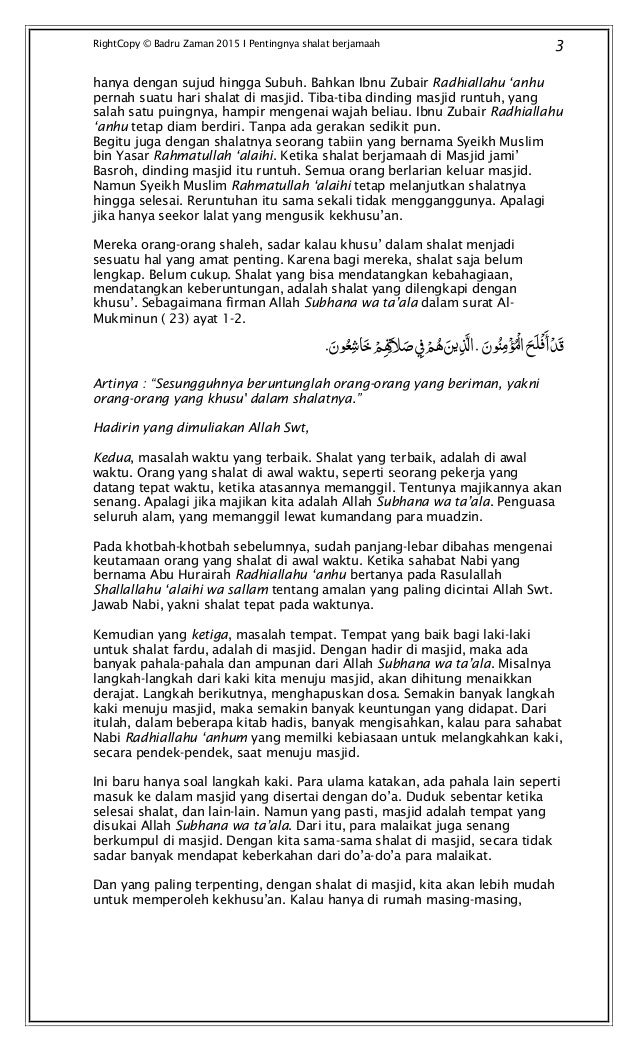 RightCopy © Badru Zaman 2015 I Pentingnya shalat berjamaah 3
hanya dengan sujud hingga Subuh. Bahkan Ibnu Zubair Radhiallahu ‘anhu
pernah suatu hari shalat di masjid. Tiba-tiba dinding masjid runtuh, yang
salah satu puingnya, hampir mengenai wajah beliau. Ibnu Zubair Radhiallahu
‘anhu tetap diam berdiri. Tanpa ada gerakan sedikit pun.
Begitu juga dengan shalatnya seorang tabiin yang bernama Syeikh Muslim
bin Yasar Rahmatullah ‘alaihi. Ketika shalat berjamaah di Masjid jami’
Basroh, dinding masjid itu runtuh. Semua orang berlarian keluar masjid.
Namun Syeikh Muslim Rahmatullah ‘alaihi tetap melanjutkan shalatnya
hingga selesai. Reruntuhan itu sama sekali tidak mengganggunya. Apalagi
jika hanya seekor lalat yang mengusik kekhusu’an.
Mereka orang-orang shaleh, sadar kalau khusu’ dalam shalat menjadi
sesuatu hal yang amat penting. Karena bagi mereka, shalat saja belum
lengkap. Belum cukup. Shalat yang bisa mendatangkan kebahagiaan,
mendatangkan keberuntungan, adalah shalat yang dilengkapi dengan
khusu’. Sebagaimana firman Allah Subhana wa ta’ala dalam surat Al-
Mukminun ( 23) ayat 1-2.
قَدْ أَفْلَحَ الْمُؤْمِنُونَ . الَّذِينَ هُمْ فِي صَلاَتِهِمْ خَاشِعُونَ.
Artinya : “Sesungguhnya beruntunglah orang-orang yang beriman, yakni
orang-orang yang khusu' dalam shalatnya.”
Hadirin yang dimuliakan Allah Swt,
Kedua, masalah waktu yang terbaik. Shalat yang terbaik, adalah di awal
waktu. Orang yang shalat di awal waktu, seperti seorang pekerja yang
datang tepat waktu, ketika atasannya memanggil. Tentunya majikannya akan
senang. Apalagi jika majikan kita adalah Allah Subhana wa ta’ala. Penguasa
seluruh alam, yang memanggil lewat kumandang para muadzin.
Pada khotbah-khotbah sebelumnya, sudah panjang-lebar dibahas mengenai
keutamaan orang yang shalat di awal waktu. Ketika sahabat Nabi yang
bernama Abu Hurairah Radhiallahu ‘anhu bertanya pada Rasulallah
Shallallahu ‘alaihi wa sallam tentang amalan yang paling dicintai Allah Swt.
Jawab Nabi, yakni shalat tepat pada waktunya.
Kemudian yang ketiga, masalah tempat. Tempat yang baik bagi laki-laki
untuk shalat fardu, adalah di masjid. Dengan hadir di masjid, maka ada
banyak pahala-pahala dan ampunan dari Allah Subhana wa ta’ala. Misalnya
langkah-langkah dari kaki kita menuju masjid, akan dihitung menaikkan
derajat. Langkah berikutnya, menghapuskan dosa. Semakin banyak langkah
kaki menuju masjid, maka semakin banyak keuntungan yang didapat. Dari
itulah, dalam beberapa kitab hadis, banyak mengisahkan, kalau para sahabat
Nabi Radhiallahu ‘anhum yang memilki kebiasaan untuk melangkahkan kaki,
secara pendek-pendek, saat menuju masjid.
Ini baru hanya soal langkah kaki. Para ulama katakan, ada pahala lain seperti
masuk ke dalam masjid yang disertai dengan do’a. Duduk sebentar ketika
selesai shalat, dan lain-lain. Namun yang pasti, masjid adalah tempat yang
disukai Allah Subhana wa ta’ala. Dari itu, para malaikat juga senang
berkumpul di masjid. Dengan kita sama-sama shalat di masjid, secara tidak
sadar banyak mendapat keberkahan dari do’a-do’a para malaikat.
Dan yang paling terpenting, dengan shalat di masjid, kita akan lebih mudah
untuk memperoleh kekhusu’an. Kalau hanya di rumah masing-masing,